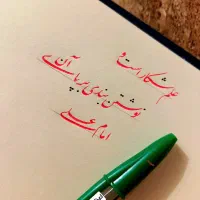 علم شکار است و
نوشتن بندی بر پای آن
امام علی